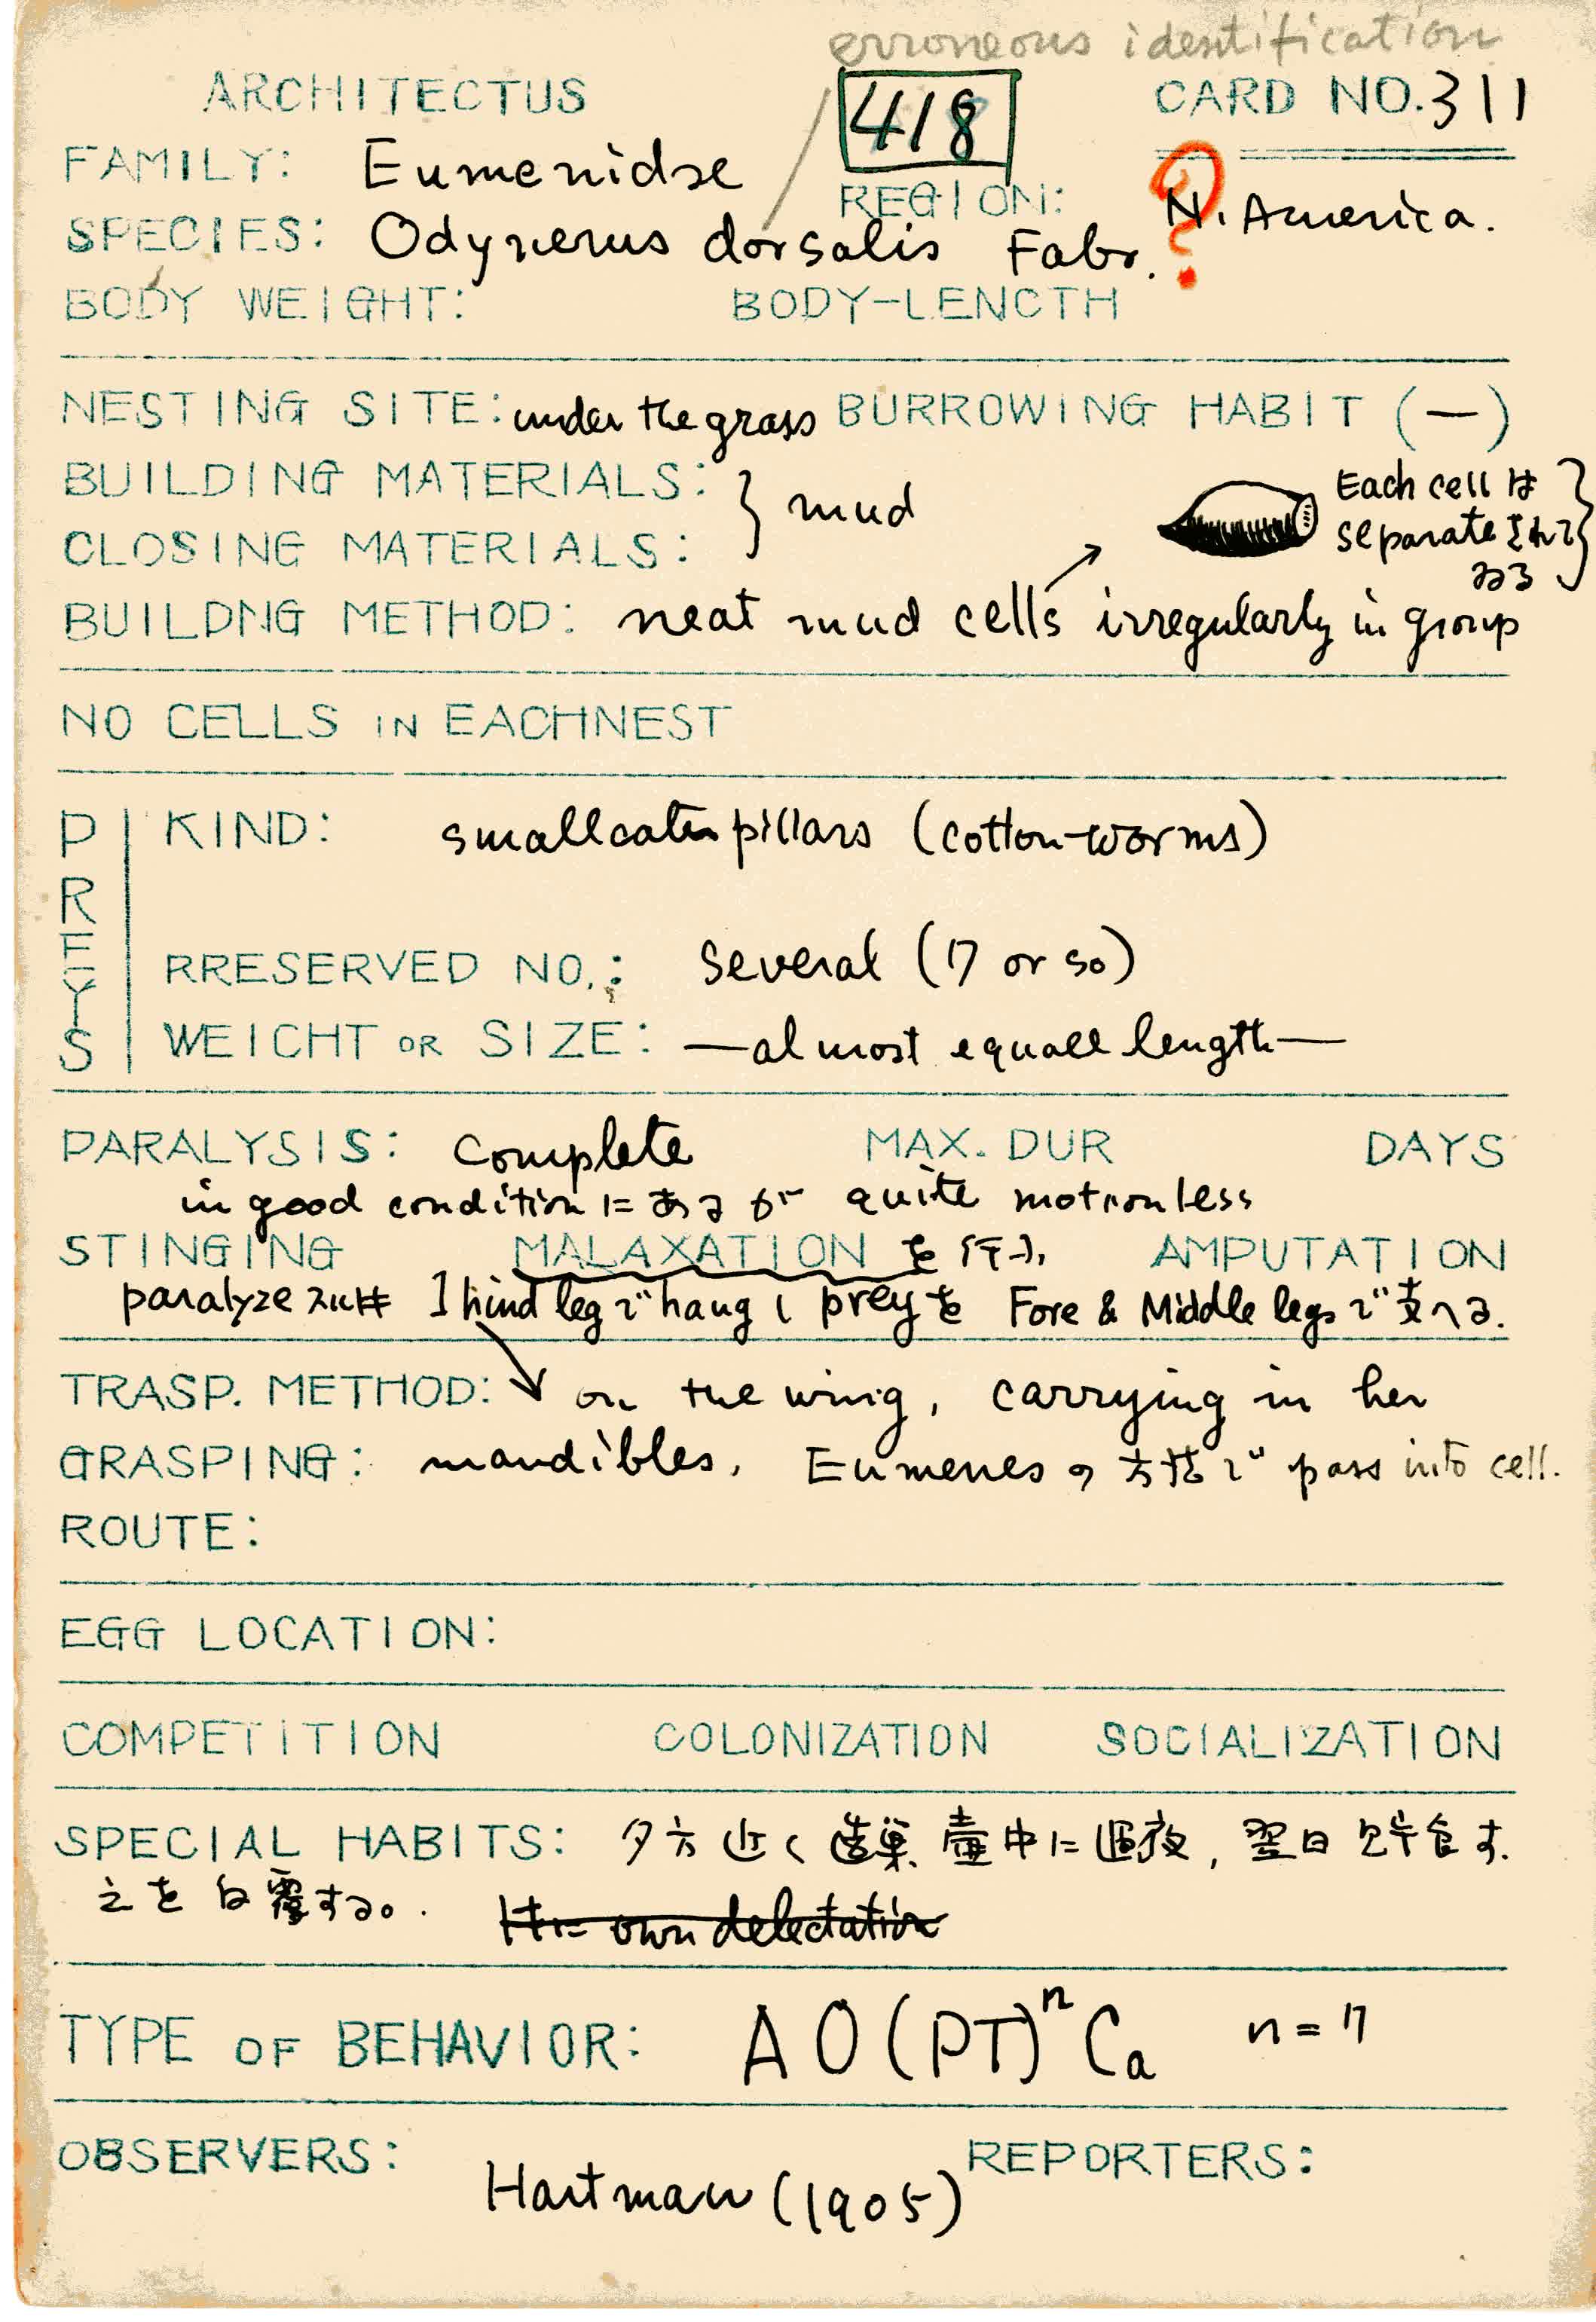 erroneous identification
ARCHITECTUS 418 CARD NO.311
FAMILY: Eumenidae REGION: N. America.
SPECIES: Odynerus dorsalis Fabr. ?
BODY WEIGHT: BODY-LENCTH
NESTING SITE: under the grass BURROWING HABIT (—)
BUILDING MATERIALS: } mud
CLOSING MATERIALS:
Each cell は
separate されて
おる
BUILDNG METHOD: neat mud cells irregularly in group
NO CELLS IN EACHNEST
PREYS
KIND: small caterpillars (cotton-worms)
RRESERVED NO.: Several (17 or so)
WEICHT OR SIZE: —almost equall length—
PARALYSIS: Complete MAX. DUR DAYS
in good condition にあるが quite motionless
STINGING MALAXATION を行い AMPUTATION
paralyze スルには 1 hind leg で hang し prey を Fore & Middle legs で支へる.
TRASP. METHOD: on the wing, carrying in her
GRASPING: mandibles, Eumenes の方法で pass into cell.
ROUTE:
EGG LOCATION:
COMPETITION COLONIZATION SOCIALIZATION
SPECIAL HABITS: 夕方近く造巣 壷中に過夜, 翌日
之を する。
own delectation
TYPE OF BEHAVIOR: A O (PT)ⁿ Ca n = 17
OBSERVERS: REPORTERS:
Hartman (1905)